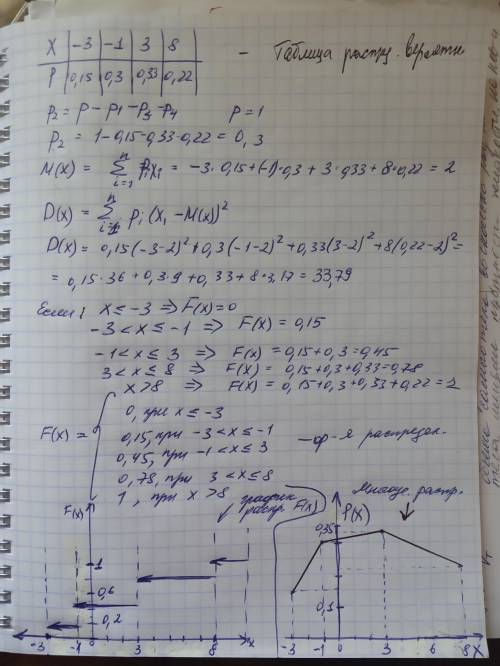 X | -3 | -1 | 3 | 8
P | 0,15 | 0,3 | 0,33 | 0,22
- Таблица распр. вероятн
p2 = p - p1 - p3 - p4   p = 1
p2 = 1-0,15-0,33-0,22 = 0,3
M(x) = ∑ i=1 n pixi = -3·0,15+(-1)·0,3+3·0,33+8·0,22 = 2
D(x) = ∑ i=1 n pi (xi - M(x))²
D(x) = 0,15(-3-2)²+0,3(-1-2)²+0,33(3-2)²+8(0,22-2)²=
= 0,15·36+0,3·9+0,33+8·3,17=33,79
Если: x ≤ -3 => F(x)=0
-3 < x ≤ -1 => F(x) = 0,15
-1 < x ≤ 3 => F(x) = 0,15+0,3=0,45
3 < x ≤ 8 => F(x) = 0,15+0,3+0,33=0,78
x>8 => F(x) = 0,15+0,3+0,33+0,22=1
F(x) =
0, при x ≤ -3
0,15, при -3<x≤-1
0,45, при -1<x≤3
0,78, при 3<x≤8
1, при x>8
- ф-я распредел.
F(x)
график распр. F(x)
1
0,6
0,2
-3 -1 0 3 8 x
Многоуг. распр.
P(X)
0,35
0,1
-3 -1 0 3 6 8 X